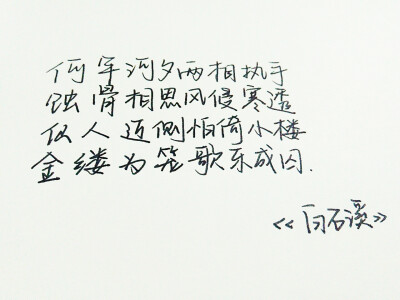 何年河夕两相执手
蚀骨相思风侵寒透
人侧怕倚小楼
金缕为笼歌乐成囚.
《白石溪》